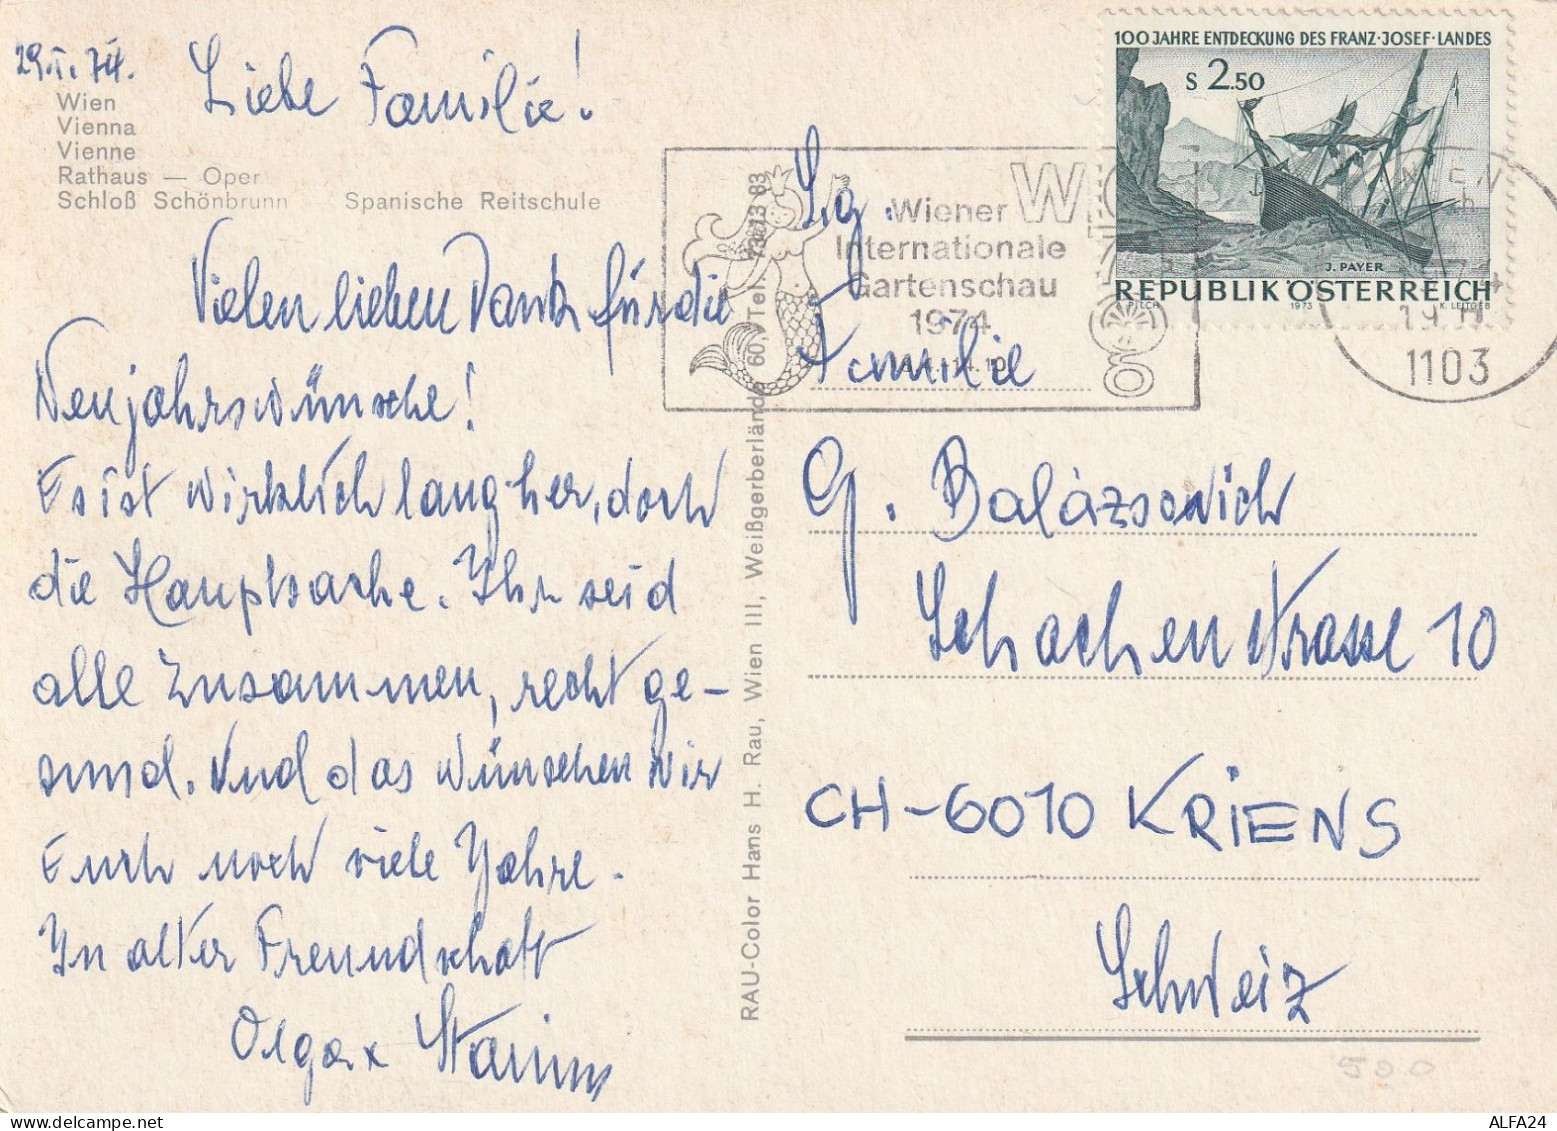 29.I.74.
Liebe Familie!
Wien
Vienna
Vienne
Rathaus — Oper
Schloß Schönbrunn Spanische Reitschule
Vielen lieben Dank für die
Neujahrswünsche!
Es ist wirklich lang her, doch
die Hauptsache. Ihr seid
alle zusammen, recht ge-
sund. Und das wünschen wir
Euch noch viele Jahre.
In alter Freundschaft
Olga
RAU-Color Hans H. Rau, Wien III, Weißgerberlände 60, Tel. 73 13 83
Wiener
Internationale
Gartenschau
1974
WIG
100 JAHRE ENTDECKUNG DES FRANZ-JOSEF-LANDES
S 2.50
J. PAYER
REPUBLIK ÖSTERREICH
PILCH 1973 K. LEITGEB
WIEN
1103
Familie
G. Balázsovich
Schachenstrasse 10
CH-6010 KRIENS
Schweiz
500
ALFA24